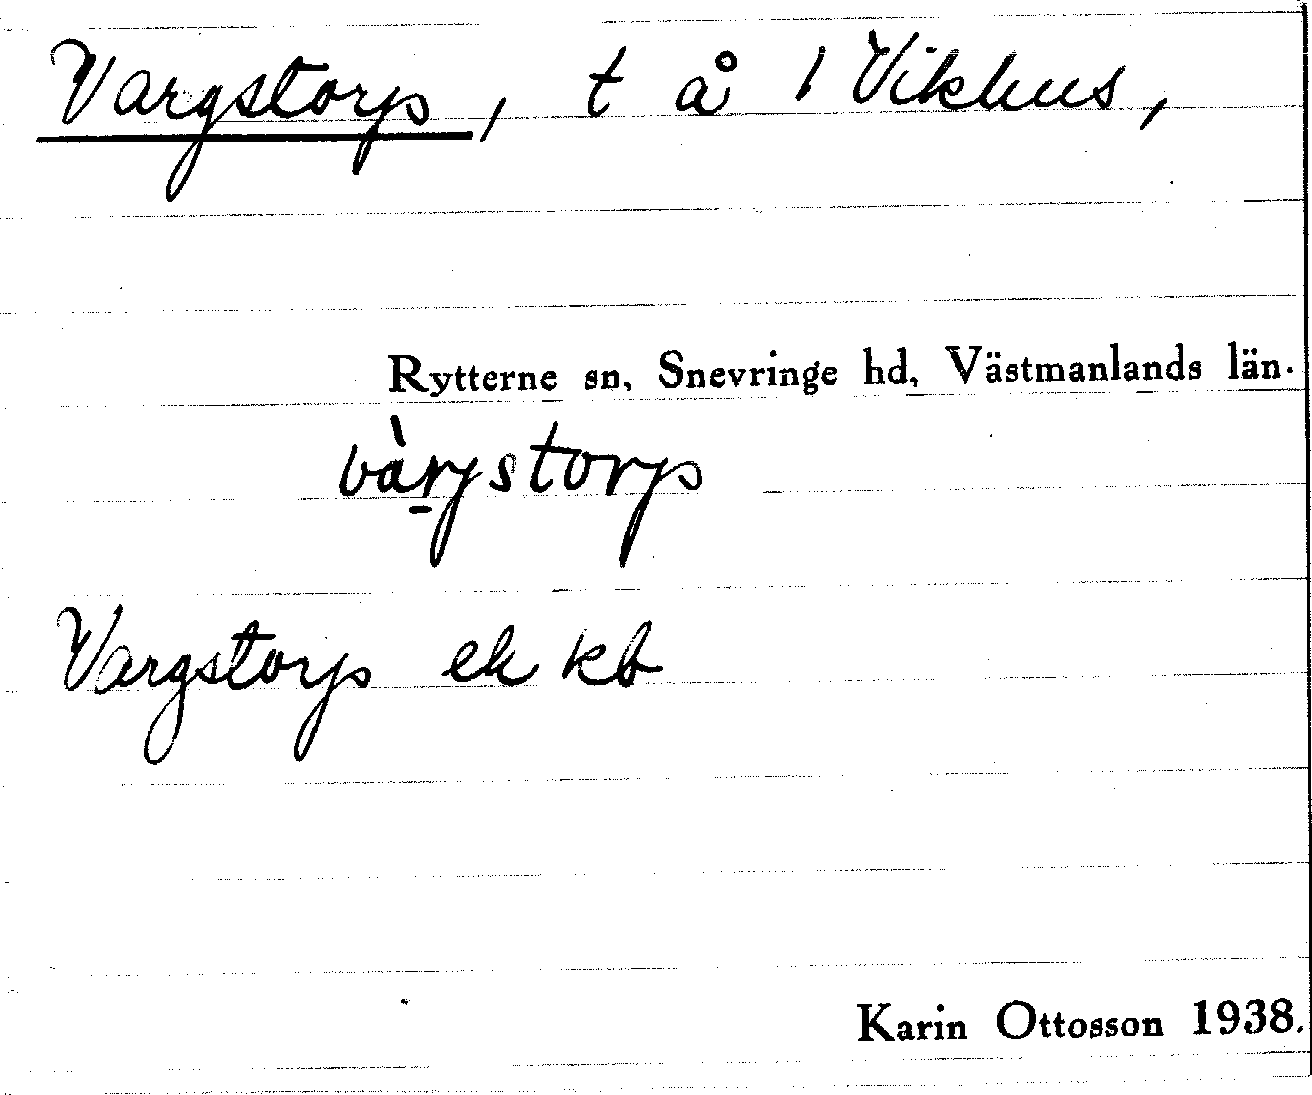 Vargstorp, t å 1 Vikhus,
Rytterne sn, Snevringe hd, Västmanlands län.
vàrjstorp
Vargstorp ek kb
Karin Ottosson 1938.